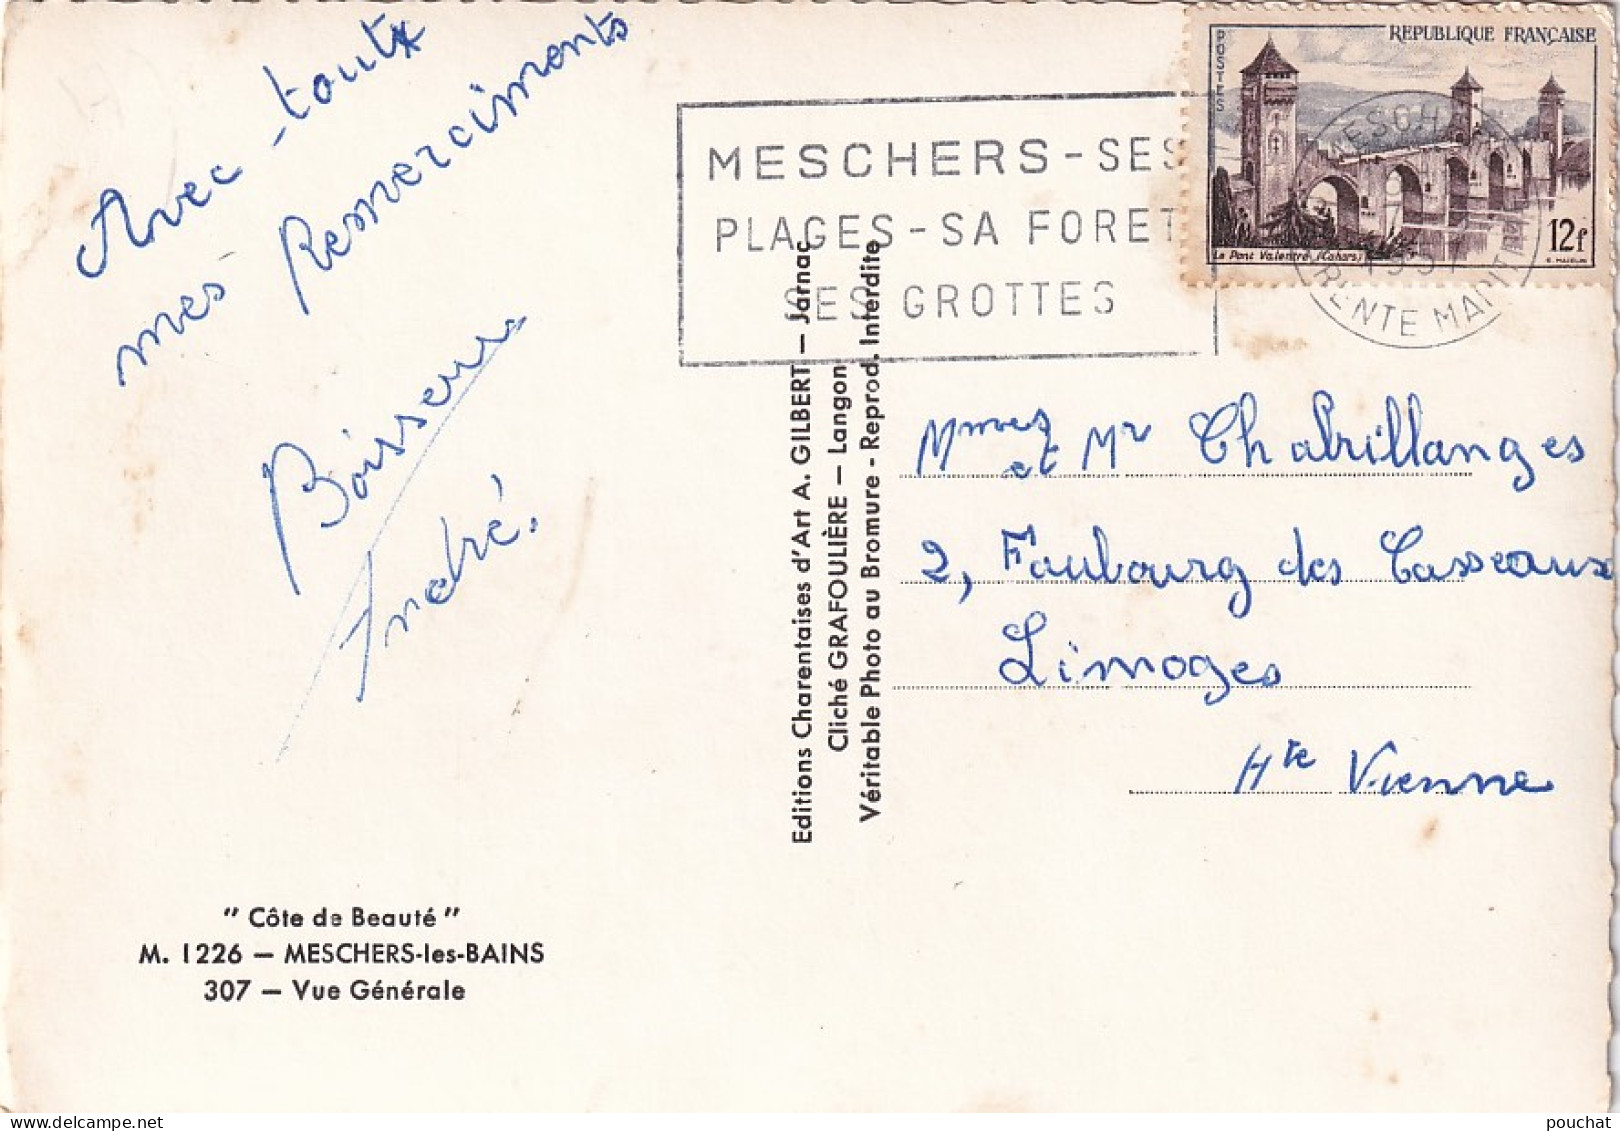 Avec toute
mes Remerciments
Boisseau
André.
" Côte de Beauté "
M. 1226 — MESCHERS-les-BAINS
307 — Vue Générale
Editions Charentaises d'Art A. GILBERT — Jarnac
Cliché GRAFOULIÈRE — Langon
Véritable Photo au Bromure - Reprod. Interdite
MESCHERS - SES
PLAGES - SA FORET
SES GROTTES
REPUBLIQUE FRANÇAISE
POSTES
12f
Le Pont Valentré (Cahors)
Mmes et Mr Chabrillanges
2, Faubourg des Casseaux
Limoges
Hte Vienne
pouchat